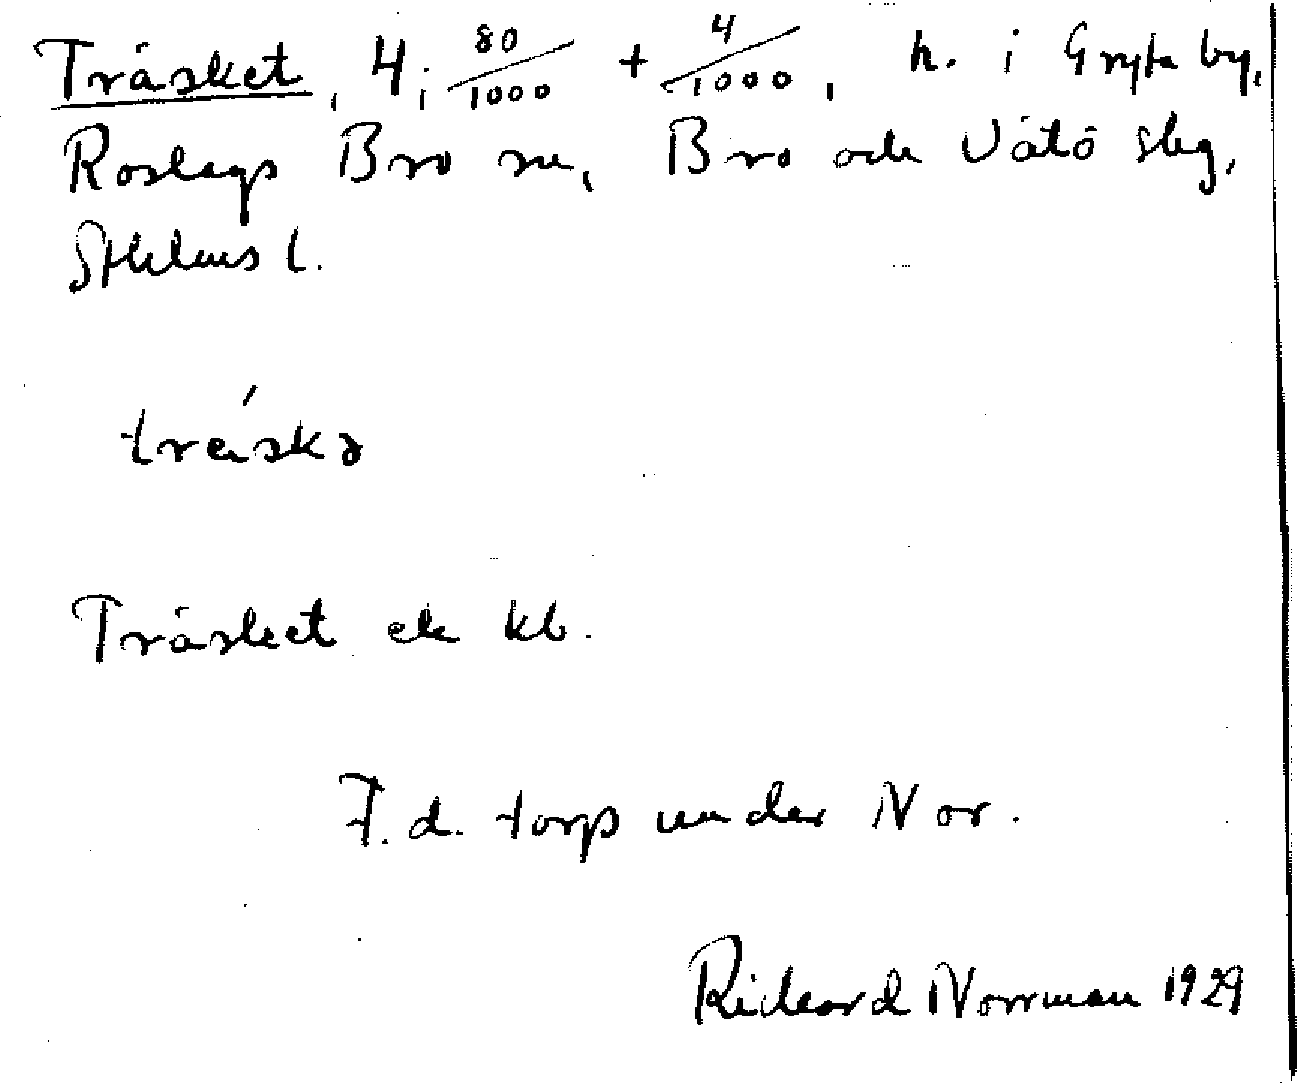 Träsket, 4; 80/1000 + 4/1000, h. i Gryta by,
Roslags Bro sn, Bro och Vätö skg,
Sthlms l.
träskə
Träsket ek kb.
F. d. torp under Nor.
Rickard Norrman 1929